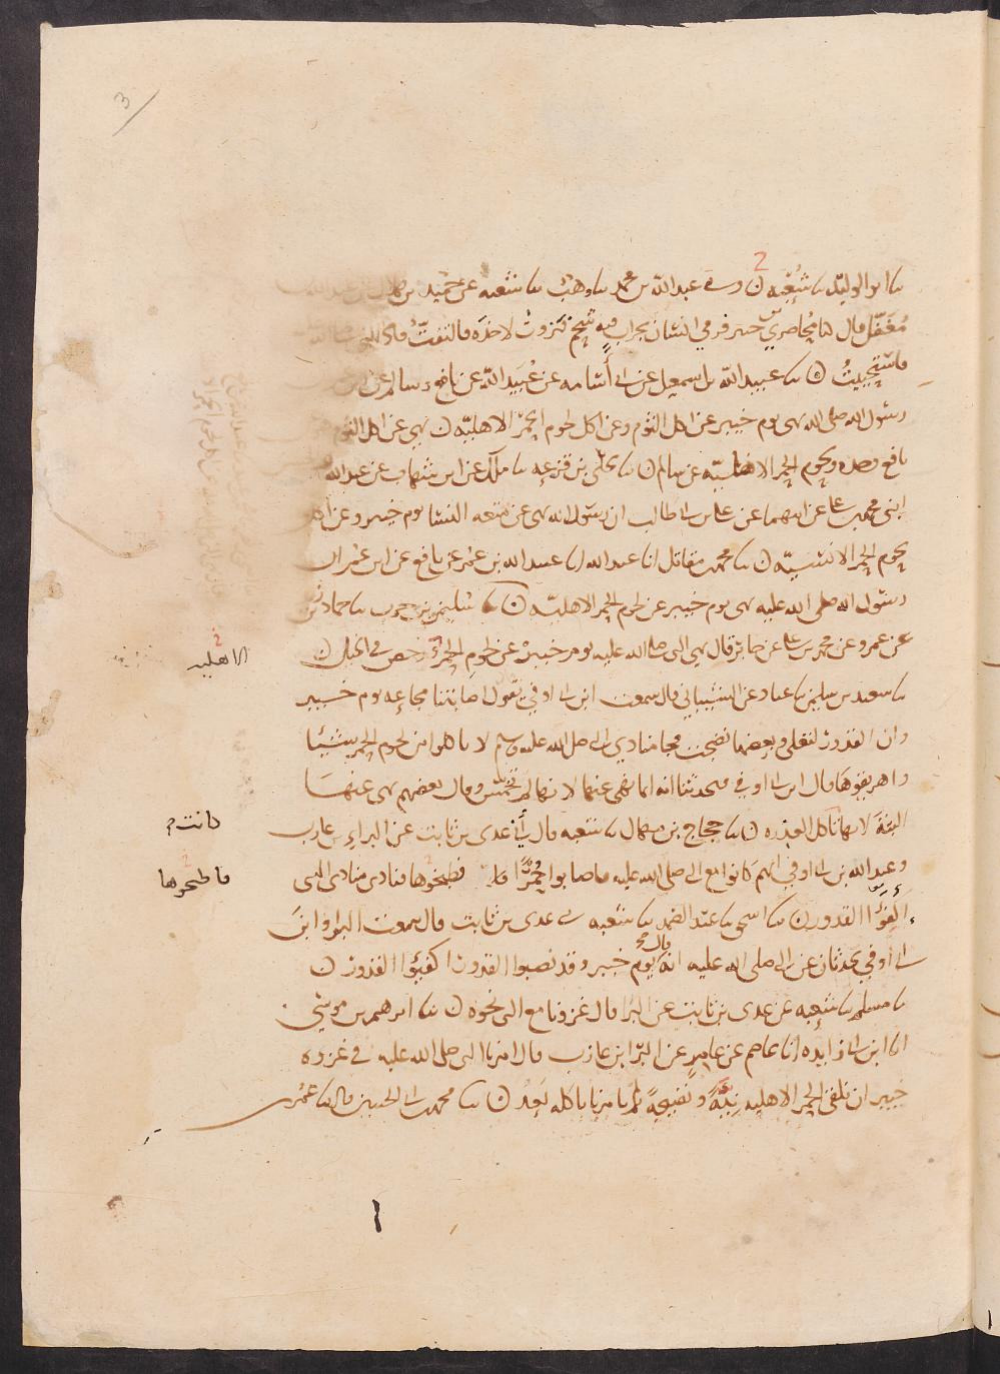 3
2
نا ابو الوليد نا شعبة ن وحدثني عبد الله بن محمد نا وهب نا شعبه عن حميد بن هلال عن عبد الله
مُغَفَّل قال كنا مُحاصري خيبر فرمى انسان بجراب فيه شحم فنزوتُ لاخذه فالتفتُّ فاذا النبي
فاستحييتُ ن نا عبيد الله بن اسمعيل عن ابي أُسامه عن عُبَيد الله عن نافع وسالم عن ابن
رسول الله صلى الله نهى يوم خيبر عن اكل الثوم وعن اكل لحوم الحمر الاهليّه ن نهى عن اكل الثوم
نافع وحده ولحوم الحمر الاهليّه عن سالم ن نا يحيى بن قزعه نا ملك عن ابن شهاب عن عبد الله
ابني محمد بن علي عن ابيهما عن علي بن ابي طالب ان رسول الله نهى عن متعه النسا يوم خيبر وعن اكل
لحوم الحمر الانسيّه ن نا محمد بن مقاتل انا عبد الله انا عبيد الله بن عمر عن نافع عن ابن عمر ان
رسول الله صلى الله عليه نهى يوم خيبر عن لحوم الحمر الاهليّه ن نا سليمن بن حرب نا حماد بن
عن عمرو عن محمد بن علي عن جابر قال نهى النبي صلى الله عليه يوم خيبر عن لحوم الحمر ورخص في الخيل ن
الاهليه
نا سعيد بن سليمن نا عباد عن الشيباني قال سمعت ابن ابي اوفي يقول اصابتنا مجاعه يوم خيبر
وان القدور لتغلي وبعضها نضجت فجا منادي النبي صلى الله عليه وسلم لا تاكلوا من لحوم الحمر شيئا
واهريقوها قال ابن ابي اوفي فتحدثنا انه انما نهى عنها لانها لم تخمّس وقال بعضهم نهى عنها
البتة لانها تاكل العذره ن نا حجاج بن منهال نا شعبه قال أني عدى بن ثابت عن البراء بن عازب
كانت
وعبد الله بن ابي اوفي انهم كانوا مع النبي صلى الله عليه فاصابوا حُمُرًا فطبخوها فنادى منادى النبي
فاطبحوها
أكفؤا القدور ن نا اسحق نا عبد الصمد نا شعبه نا عدى بن ثابت قال سمعت البراء وابن
ابي اوفي يحدثان عن النبي صلى الله عليه انه قال يوم خيبر وقد نصبوا القدور اكفيؤا القدور ن
نا مسلم نا شعبه عن عدى بن ثابت عن البرا قال غزونا مع النبي نحوه ن نا ابرهيم بن موسى
انا ابن ابي زايده انا عاصم عن عامر عن البرا بن عازب قال امرنا النبي صلى الله عليه في غزوه
خيبر ان نلقي الحمر الاهليه نِيّةً ونضيجةً ثم لم يامرنا باكله بَعْدُ ن نا محمد بن ابي الحسين قال نا عمر بن